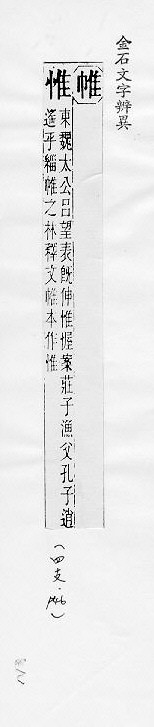 金石文字辨異
帷
惟
東魏太公呂望表既伸惟幄案莊子漁父孔子逍
遙乎緇帷之林釋文帷本作惟
(四支·